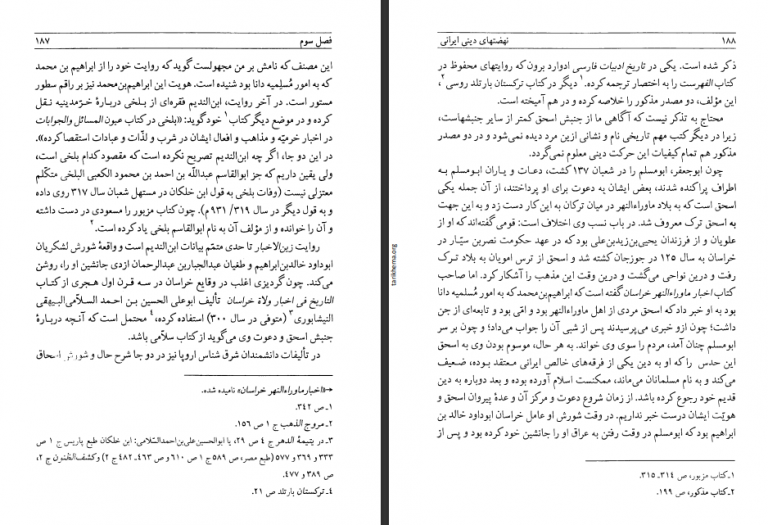 فصل سوم ۱۸۷
این مصنف که نامش بر من مجهولست گوید که روایت خود را از ابراهیم بن محمد
که به امور مُسلِمیه دانا بود شنیده است. هویت این ابراهیم‌بن‌محمد نیز بر راقم سطور
مستور است. در آخر روایت، ابن‌الندیم فقره‌ای از بلخی دربارهٔ خرّم‌دینیه نقل
کرده و در موضع دیگر کتاب۱ خود گوید: «بلخی در کتاب عیون المسائل والجوابات
در اخبار خرمیّه و مذاهب و افعال ایشان در شرب و لذّات و عبادات استقصا کرده».
در این دو جا، اگر چه ابن‌الندیم تصریح نکرده است که مقصود کدام بلخی است،
ولی یقین داریم که جز ابوالقاسم عبداللّه بن احمد بن محمود الکعبی البلخی متکلّم
معتزلی نیست (وفات بلخی به قول ابن خلکان در مستهل شعبان سال ۳۱۷ روی داده
و به قول دیگر در سال ۳۱۹/ ۹۳۱م). چون کتاب مزبور را مسعودی در دست داشته
و آن را خوانده و از مؤلف آن به نام ابوالقاسم بلخی یاد کرده است.۲
روایت زین‌الاخبار تا حدی متمّم بیانات ابن‌الندیم است و واقعهٔ شورش لشکریان
ابوداود خالدبن‌ابراهیم و طغیان عبدالجباربن عبدالرحمان ازدی جانشین او را، روشن
می‌کند. چون گردیزی اغلب در وقایع خراسان در سه قرن اول هجری از کتاب
التاریخ فی اخبار ولاة خراسان تألیف ابوعلی الحسین بن احمد السلاّمی‌البیهقی
النیشابوری۳ (متوفی در سال ۳۰۰) استفاده کرده،۴ محتمل است که آنچه دربارهٔ
جنبش اسحق و دعوت وی می‌گوید از کتاب سلاّمی باشد.
در تألیفات دانشمندان شرق شناس اروپا نیز در دو جا شرح حال و شورش اسحاق
→«اخبار ماوراءالنهر خراسان» نامیده شده.
۱ـ ص ۳۴۲.
۲ـ مروج الذهب ج ۱ ص ۱۵۶.
۳ـ در یتیمة الدهر ج ۴ ص ۲۹، یا ابوالحسین‌علی‌بن‌احمدالسّلامی: ابن خلکان طبع پاریس ج ۱ ص
۳۳۳ و ۳۶۹ و ۵۷۷ (طبع مصر، ص ۵۸۹ ج ۱ ص ۶۱۰ و ص ۴۶۳ـ۴۸۲ ج ۲) و کشف‌الظنون ج ۲،
ص ۳۸۹ و ۴۷۷.
۴ـ ترکستان بارتلد ص ۲۱.
tarikhema.org
۱۸۸ نهضتهای دینی ایرانی
ذکر شده است. یکی در تاریخ ادبیات فارسی ادوارد برون که روایتهای محفوظ در
کتاب الفهرست را به اختصار ترجمه کرده.۱ دیگر در کتاب ترکستان بارتلد روسی۲،
این مؤلف، دو مصدر مذکور را خلاصه کرده و در هم آمیخته است.
محتاج به تذکر نیست که آگاهی ما از جنبش اسحق کمتر از سایر جنبشهاست،
زیرا در دیگر کتب مهم تاریخی نام و نشانی ازین مرد دیده نمی‌شود و در دو مصدر
مذکور هم تمام کیفیات این حرکت دینی معلوم نمی‌گردد.
چون ابوجعفر، ابومسلم را در شعبان ۱۳۷ کشت، دعات و یاران ابومسلم به
اطراف پراکنده شدند، بعض ایشان به دعوت برای او پرداختند، از آن جمله یکی
اسحق است که به بلاد ماوراءالنهر در میان ترکان به این کار دست زد و به این جهت
به اسحق ترک معروف شد. در باب نسب وی اختلاف است: قومی گفته‌اند که او از
علویان و از فرزندان یحیی‌بن‌زیدبن‌علی بود که در عهد حکومت نصربن سیّار در
خراسان به سال ۱۲۵ در جوزجان کشته شد و اسحق از ترس امویان به بلاد ترک
رفت و درین نواحی می‌گشت و درین وقت این مذهب را آشکار کرد. اما صاحب
کتاب اخبار ماوراءالنهر خراسان گفته است که ابراهیم‌بن‌محمد که به امور مُسلمیه دانا
بود به او خبر داد که اسحق مردی از اهل ماوراءالنهر بود و امّی بود و تابعه‌ای از جن
داشت؛ چون ازو خبری می‌پرسیدند پس از شبی آن را جواب می‌داد؛ و چون بر سر
ابومسلم چنان آمد، مردم را سوی وی خواند. به هر حال، موسوم بودن وی به اسحق
این حدس را که او به دین یکی از فرقه‌های خالص ایرانی معتقد بوده، ضعیف
می‌کند و به نام مسلمانان می‌ماند، ممکنست اسلام آورده بوده و بعد دوباره به دین
قدیم خود رجوع کرده باشد. از زمان شروع دعوت و مرکز آن و عدهٔ پیروان اسحق و
هویّت ایشان درست خبر نداریم. در وقت شورش او عامل خراسان ابوداود خالد بن
ابراهیم بود که ابومسلم در وقت رفتن به عراق او را جانشین خود کرده بود و پس از
۱ـ کتاب مزبور، ص ۳۱۴ـ ۳۱۵.
۲ـ کتاب مذکور، ص ۱۹۹.